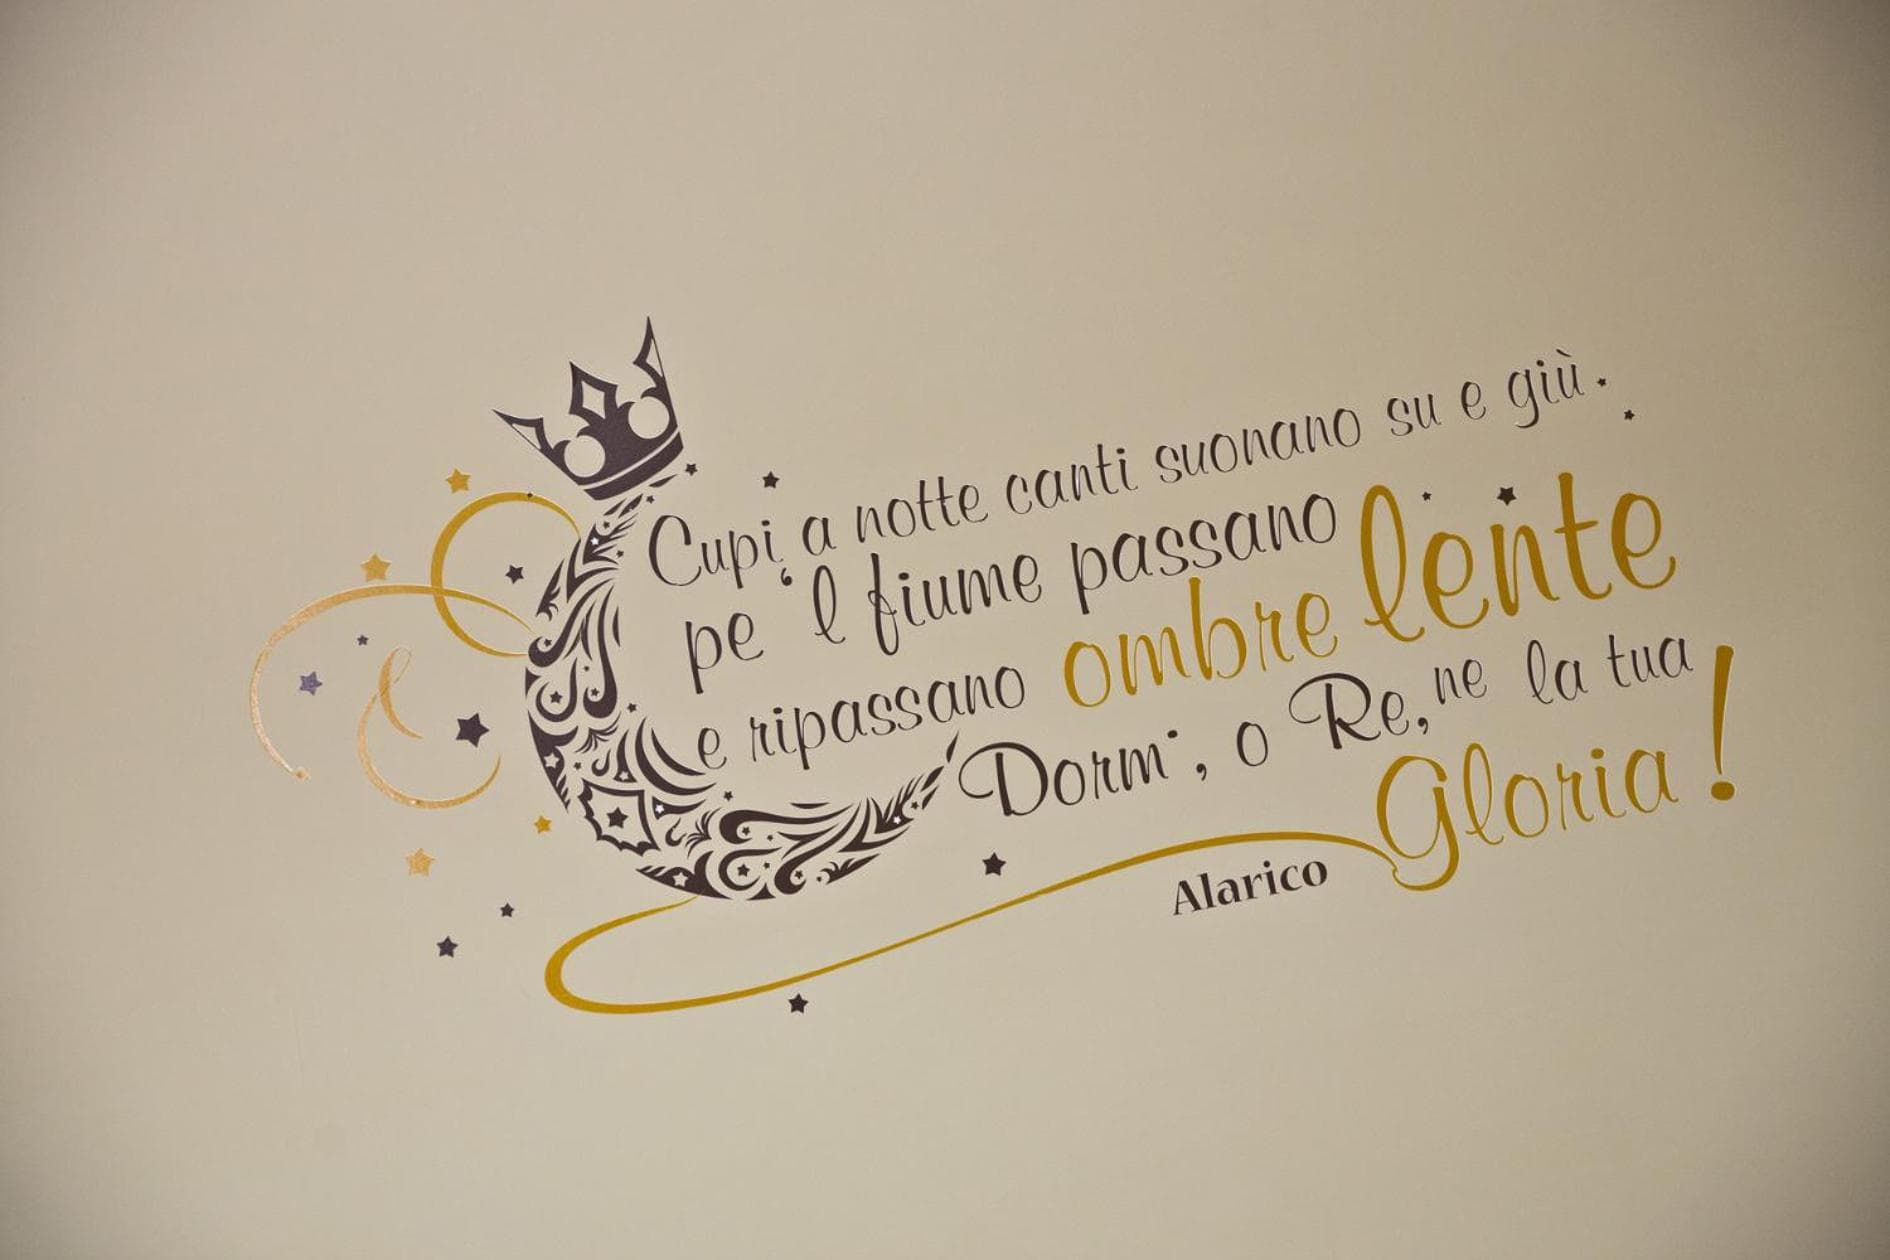 Cupi a notte canti suonano su e giù.
pe 'l fiume passano lente
e ripassano ombre
Dorm', o Re, ne la tua
Gloria!
Alarico